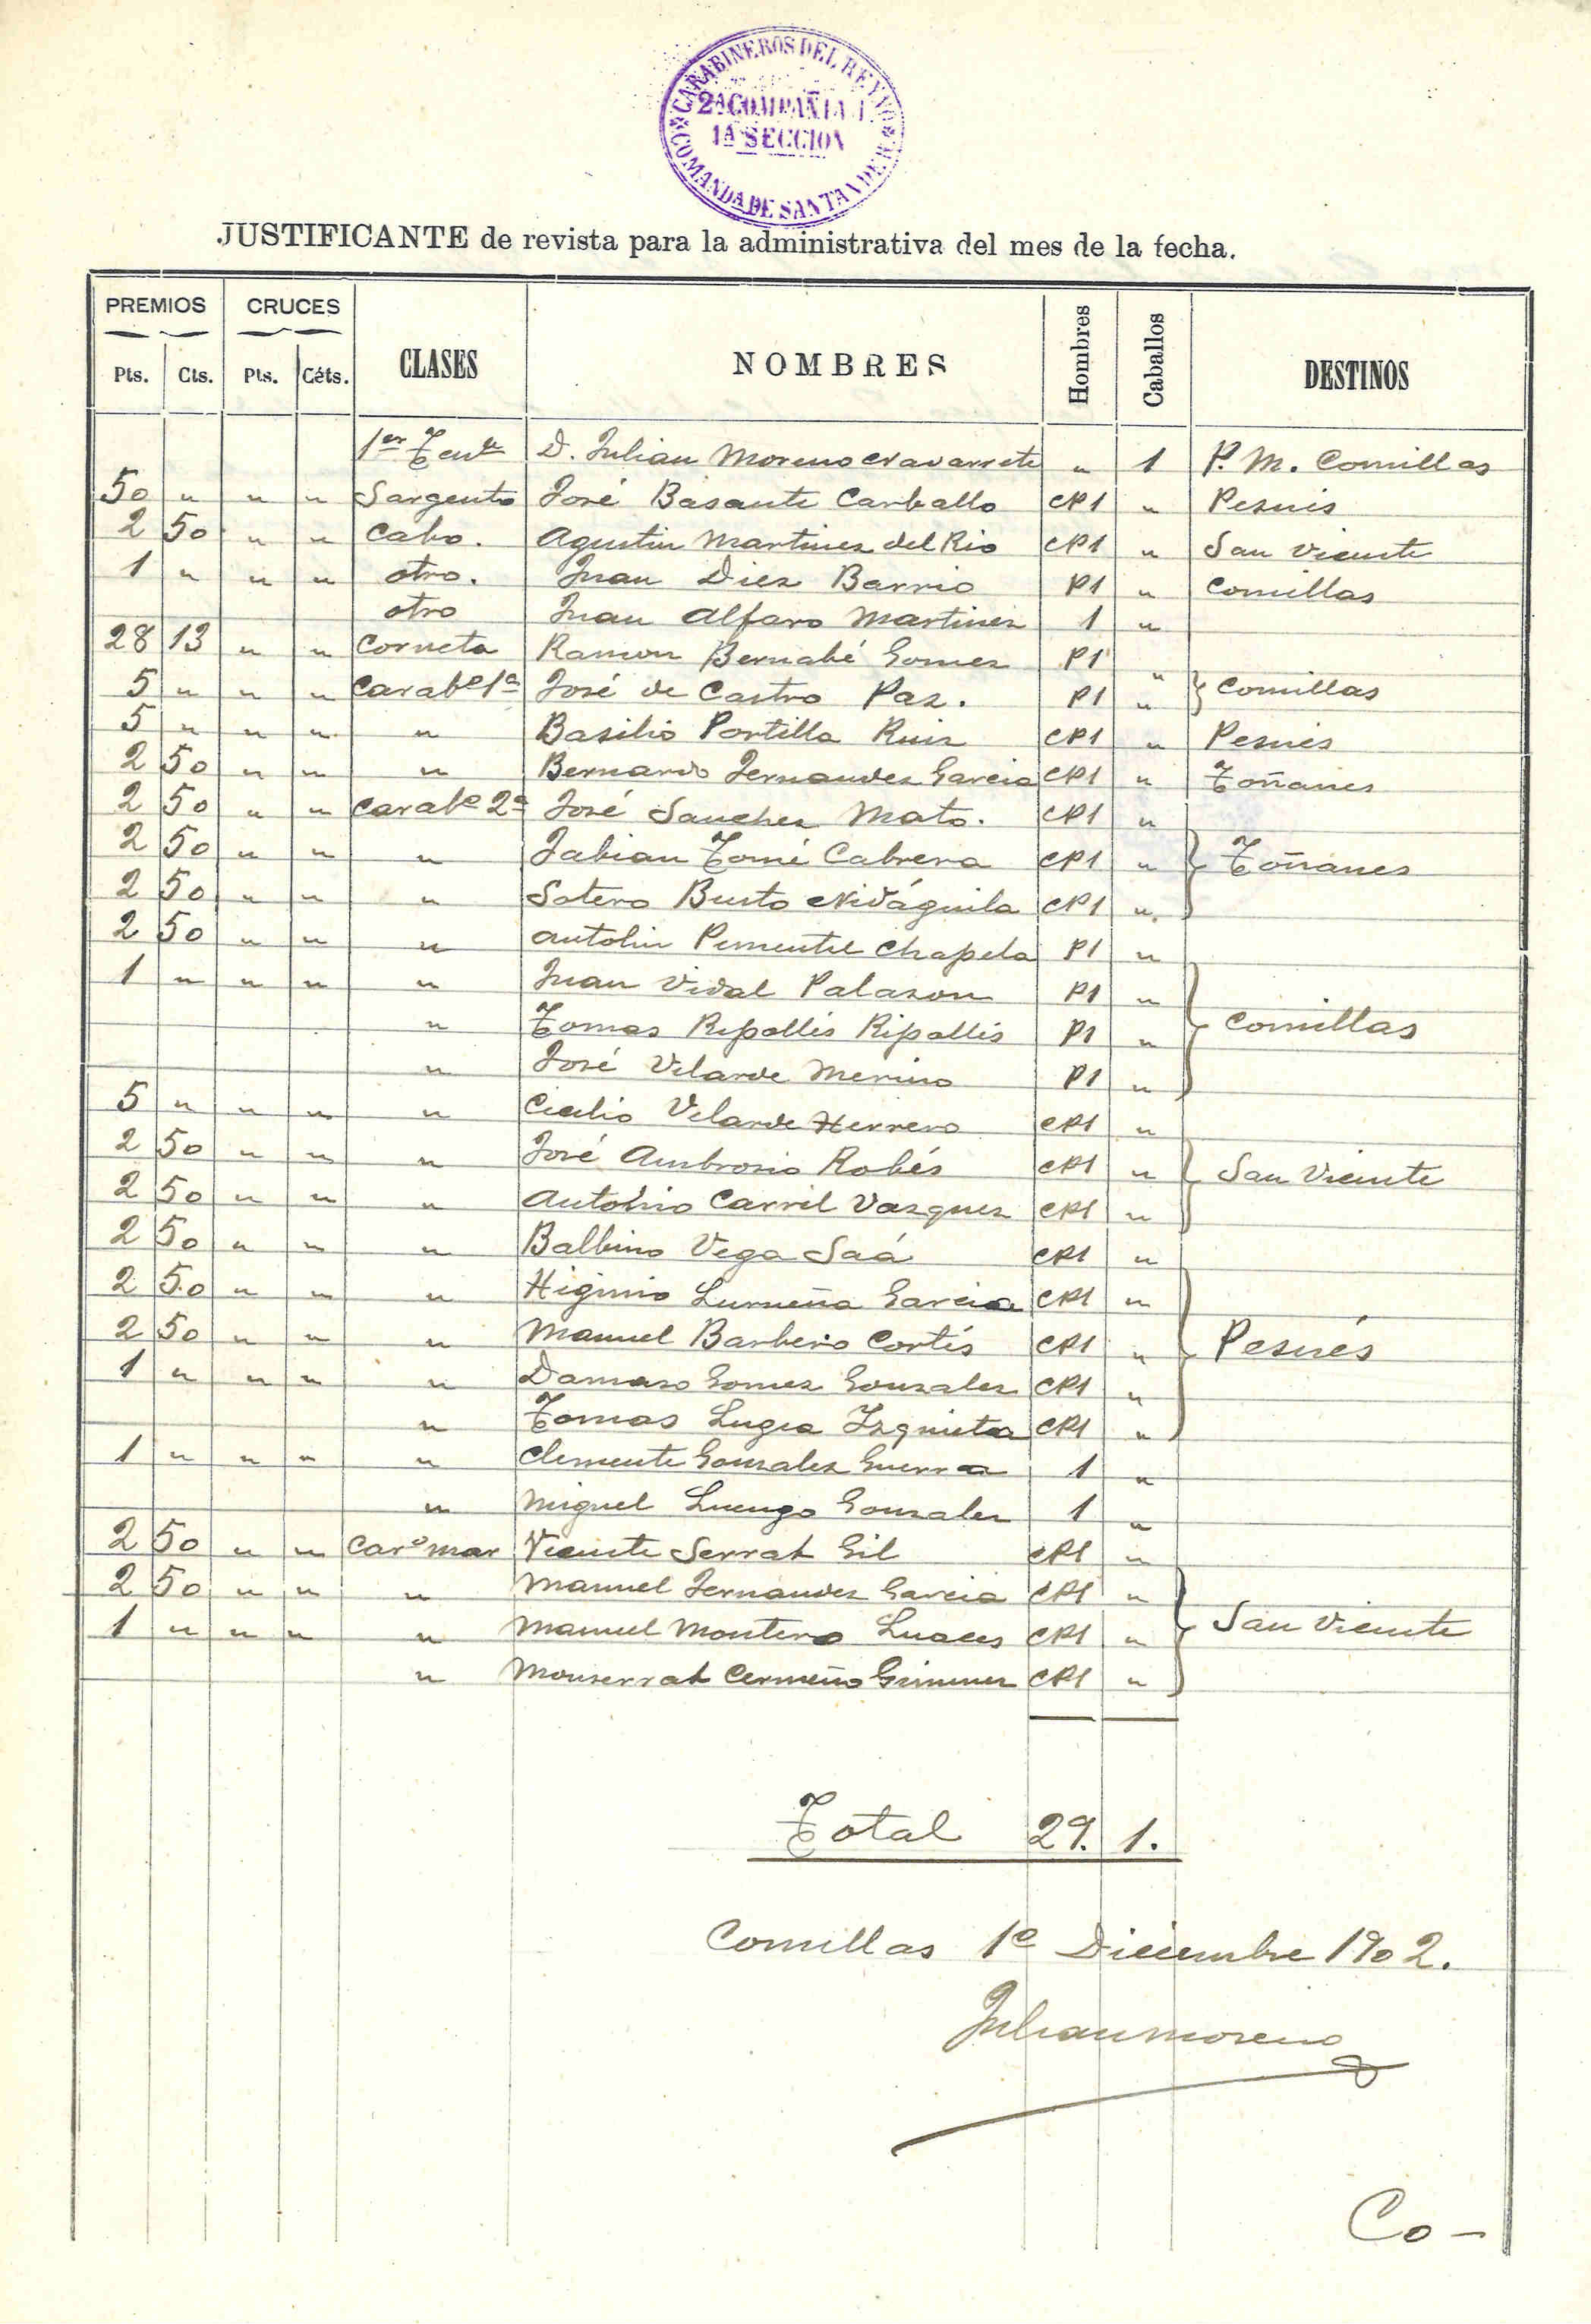 CARABINEROS DEL REYNO
2ª COMPAÑIA
1ª SECCION
COMANDA DE SANTANDER
JUSTIFICANTE de revista para la administrativa del mes de la fecha.
PREMIOS CRUCES CLASES NOMBRES Hombres Caballos DESTINOS
Pts. Cts. Pts. Céts.
1er Tente D. Julian Moreno Navarrete " 1 P. M. Comillas
50 " " " Sargento José Basante Carballo CP1 " Pesués
2 50 " " Cabo. Agustin Martinez del Rio CP1 " San Vicente
1 " " " otro. Juan Diez Barrio P1 " Comillas
otro Juan Alfaro Martinez 1 "
28 13 " " Corneta Ramon Bernabé Gomez P1 "
5 " " " Carabº 1ª José de Castro Paz. P1 " } Comillas
5 " " " " Basilio Portilla Ruiz CP1 " Pesués
2 50 " " " Bernardo Fernandez Garcia CP1 " Toñanes
2 50 " " Carabº 2ª José Sanchez Mato. CP1 "
2 50 " " " Fabian Tomé Cabrera CP1 " } Toñanes
2 50 " " " Sotero Busto Nidáguila CP1 "
2 50 " " " Antolin Pimentel Chapela P1 "
1 " " " " Juan Vidal Palazon P1 "
" Tomas Ripollés Ripollés P1 " } Comillas
" José Velarde Merino P1 "
5 " " " " Cecilio Velarde Herrero CP1 "
2 50 " " " José Ambrosio Robés CP1 " } San Vicente
2 50 " " " Antonio Carril Vazquez CP1 "
2 50 " " " Balbino Vega Saá CP1 "
2 50 " " " Higinio Lumeña Garcia CP1 "
2 50 " " " Manuel Barbero Cortés CP1 " } Pesués
1 " " " " Damaso Gomez Gonzalez CP1 "
" Tomas Lugea Izquieta CP1 "
1 " " " " Clemente Gonzalez Guerra 1 "
" Miguel Luengo Gonzalez 1 "
2 50 " " Carº mar Vicente Serrat Gil CP1 "
2 50 " " " Manuel Fernandez Garcia CP1 "
1 " " " " Manuel Montero Luaces CP1 " } San Vicente
" Monserrat Cermeño CP1 "
Total 29. 1.
Comillas 1º Diciembre 1902.
Julian Moreno
Co-